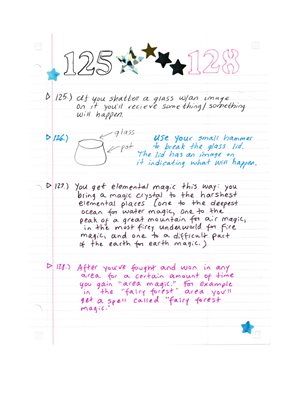 125 128
125.) If you shatter a glass w/an image
on it you'll recieve something/something
will happen.
126.) glass
pot
Use your small hammer
to break the glass lid.
The lid has an image on
it indicating what will happen.
127.) You get elemental magic this way: you
bring a magic crystal to the harshest
elemental places (one to the deepest
ocean for water magic, one to the
peak of a great mountain for air magic,
in the most firey underworld for fire
magic, and one to a difficult part
of the earth for earth magic.)
128.) After you've fought and won in any
area for a certain amount of time
you gain "area magic." For example
in the "fairy forest" area you'll
get a spell called "fairy forest
magic."